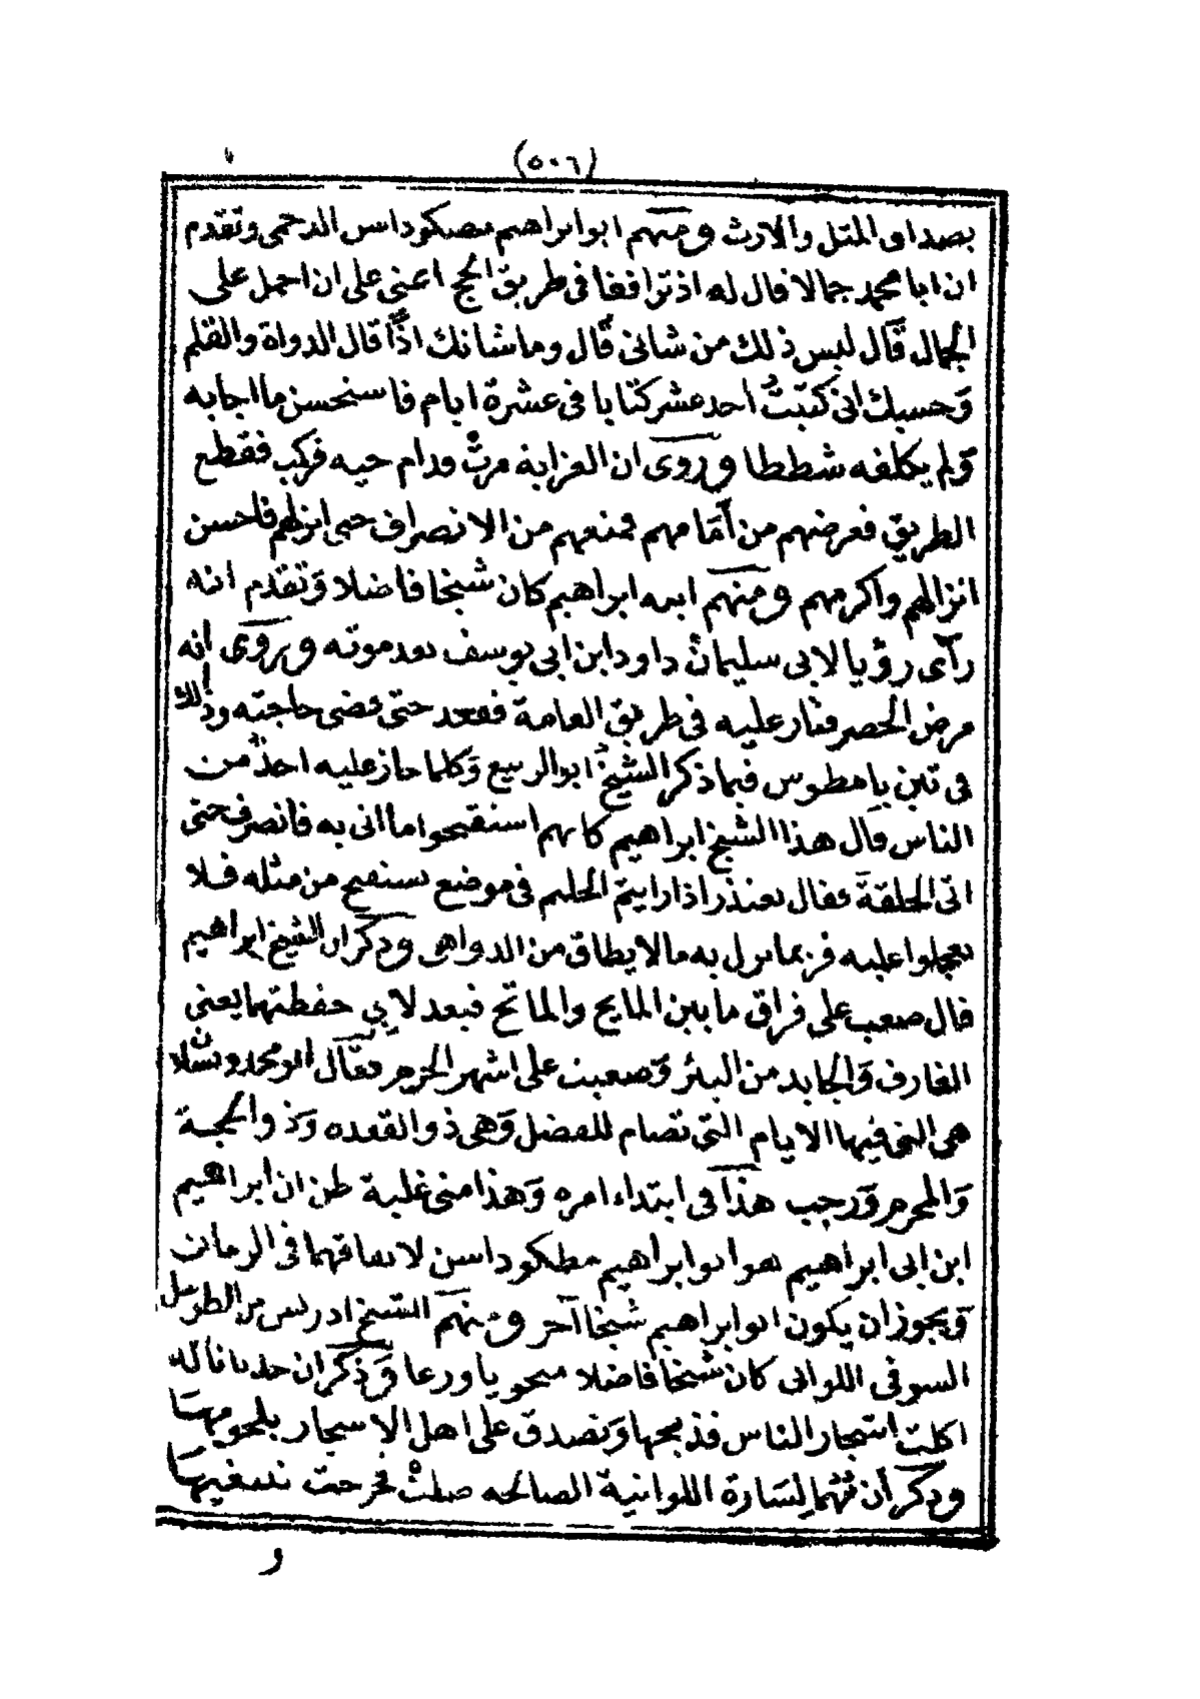 (٥٠٦)
والارث ومنهم ابو ابراهيم مصكوداسن الدجمى وتقدم
ان ابا محمد جمالا قال له اذ ترافقا فى طريق الحج اعنى على ان احمل على
الجمال قال ليس ذلك من شانى قال وما شانك اذا قال الدواة والقلم
وحسبك انى كتبت احد عشر كتابا فى عشرة ايام فاستحسن ما اجابه
ولم يكلفه شططا وروى ان العزابة مرت قدام حيه فركب فقطع
الطريق فعرضهم من أمامهم فمنعهم من الانصراف حتى انزلهم فاحسن
انزالهم واكرمهم ومنهم ابنه ابراهيم كان شيخا فاضلا وتقدم انه
رأى رؤيا لابى سليمان داود ابن ابى يوسف بعد موته ويروى انه
مرض الحصر فثار عليه فى طريق العامة فقعد حتى قضى حاجته وذلك
فى تين يامطوس فيما ذكر الشيخ ابو الربيع وكلما جاز عليه احد من
الناس قال هذا الشيخ ابراهيم كانهم استقبحوا ما اتى به فانصرف حتى
اتى الحلقة فقال يعتذر اذا رايتم الحليم فى موضع يستقبح من مثله فلا
تعجلوا عليه فربما نزل به ما لا يطاق من الدواهى وذكر ان الشيخ ابراهيم
قال صعب على فراق ما بين المايح والماتح فبعد لاي حفظتهما يعنى
الغارف والجابد من البئر وصعبت على اشهر الحرم فقال ابو محمد ونسلان
هى التى فيها الايام التى تصام للفضل وهى ذو القعده وذو الحجة
والمحرم ورجب هذا فى ابتداء امره وهذا منى غلبة ظن ان ابراهيم
ابن ابى ابراهيم هو ابو ابراهيم مطكوداسن لاتفاقهما فى الزمان
ويجوز ان يكون ابو ابراهيم شيخا آخر ومنهم الشيخ ادريس من
السوفى اللواتى كان شيخا فاضلا ورعا وذكر ان جديا فاله
اكلت اشجار الناس فذبحها وتصدق على اهل الاشجار بلحومها
وذكر أن ثم لسارة اللواتية الصالحه صلت فخرجت تسقيها
و